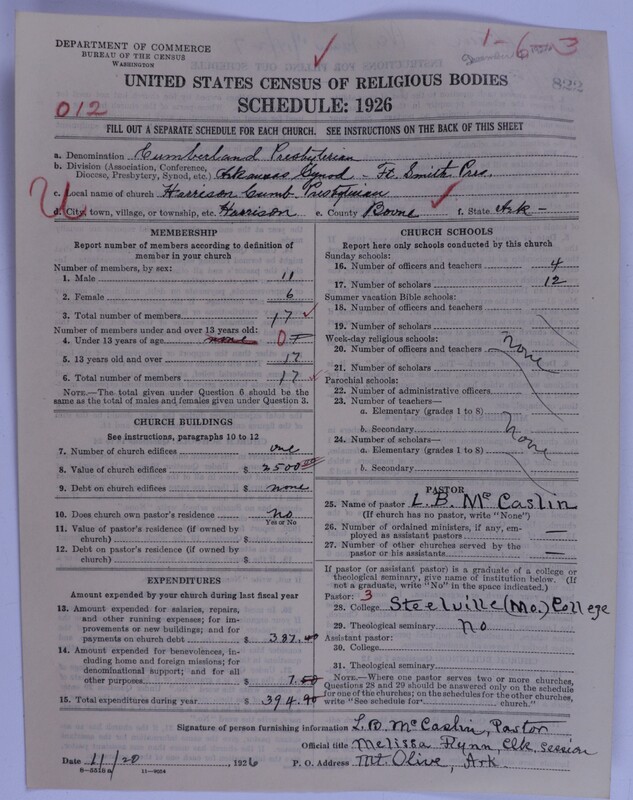 DEPARTMENT OF COMMERCE
BUREAU OF THE CENSUS
WASHINGTON
1-6-3
822
UNITED STATES CENSUS OF RELIGIOUS BODIES
SCHEDULE: 1926
012
FILL OUT A SEPARATE SCHEDULE FOR EACH CHURCH. SEE INSTRUCTIONS ON THE BACK OF THIS SHEET
a. Denomination Cumberland Presbyterian
b. Division (Association, Conference, Diocese, Presbytery, Synod, etc.) Arkansas Synod - Ft. Smith Pres.
c. Local name of church Harrison Cumb. Presbyterian
d. City, town, village, or township, etc. Harrison e. County Boone f. State Ark -
MEMBERSHIP
Report number of members according to definition of
member in your church
Number of members, by sex:
1. Male 11
2. Female 6
3. Total number of members 17
Number of members under and over 13 years old:
4. Under 13 years of age none 0
5. 13 years old and over 17
6. Total number of members 17
NOTE.—The total given under Question 6 should be the
same as the total of males and females given under Question 3.
CHURCH BUILDINGS
See instructions, paragraphs 10 to 12
7. Number of church edifices one
8. Value of church edifices $ 2500.00
9. Debt on church edifices $ none
10. Does church own pastor's residence? No
Yes or No
11. Value of pastor's residence (if owned by
church) $
12. Debt on pastor's residence (if owned by
church) $
EXPENDITURES
Amount expended by your church during last fiscal year
13. Amount expended for salaries, repairs,
and other running expenses; for im-
provements or new buildings; and for
payments on church debt $ 387.40
14. Amount expended for benevolences, in-
cluding home and foreign missions; for
denominational support; and for all
other purposes $ 7.50
15. Total expenditures during year $ 394.90
CHURCH SCHOOLS
Report here only schools conducted by this church
Sunday schools:
16. Number of officers and teachers 4
17. Number of scholars 12
Summer vacation Bible schools:
18. Number of officers and teachers
19. Number of scholars
Week-day religious schools:
20. Number of officers and teachers
none
21. Number of scholars
Parochial schools:
22. Number of administrative officers
23. Number of teachers—
a. Elementary (grades 1 to 8)
b. Secondary
none
24. Number of scholars—
a. Elementary (grades 1 to 8)
b. Secondary
PASTOR
25. Name of pastor L.B. McCaslin
(If church has no pastor, write "None")
26. Number of ordained ministers, if any, em-
ployed as assistant pastors —
27. Number of other churches served by the
pastor or his assistants —
If pastor (or assistant pastor) is a graduate of a college or
theological seminary, give name of institution below. (If
not a graduate, write "No" in the space indicated.)
Pastor: 3
28. College Steelville (Mo.) College
29. Theological seminary No
Assistant pastor:
30. College
31. Theological seminary
NOTE.—Where one pastor serves two or more churches,
Questions 28 and 29 should be answered only on the schedule
for one of the churches; on the schedules for the other churches,
write "See schedule for church."
Signature of person furnishing information L.B. McCaslin, Pastor
Official title Melissa Flynn, Clk, Session
Date 11/20, 1926 P. O. Address Mt. Olive, Ark.
8-5518a 11-9054